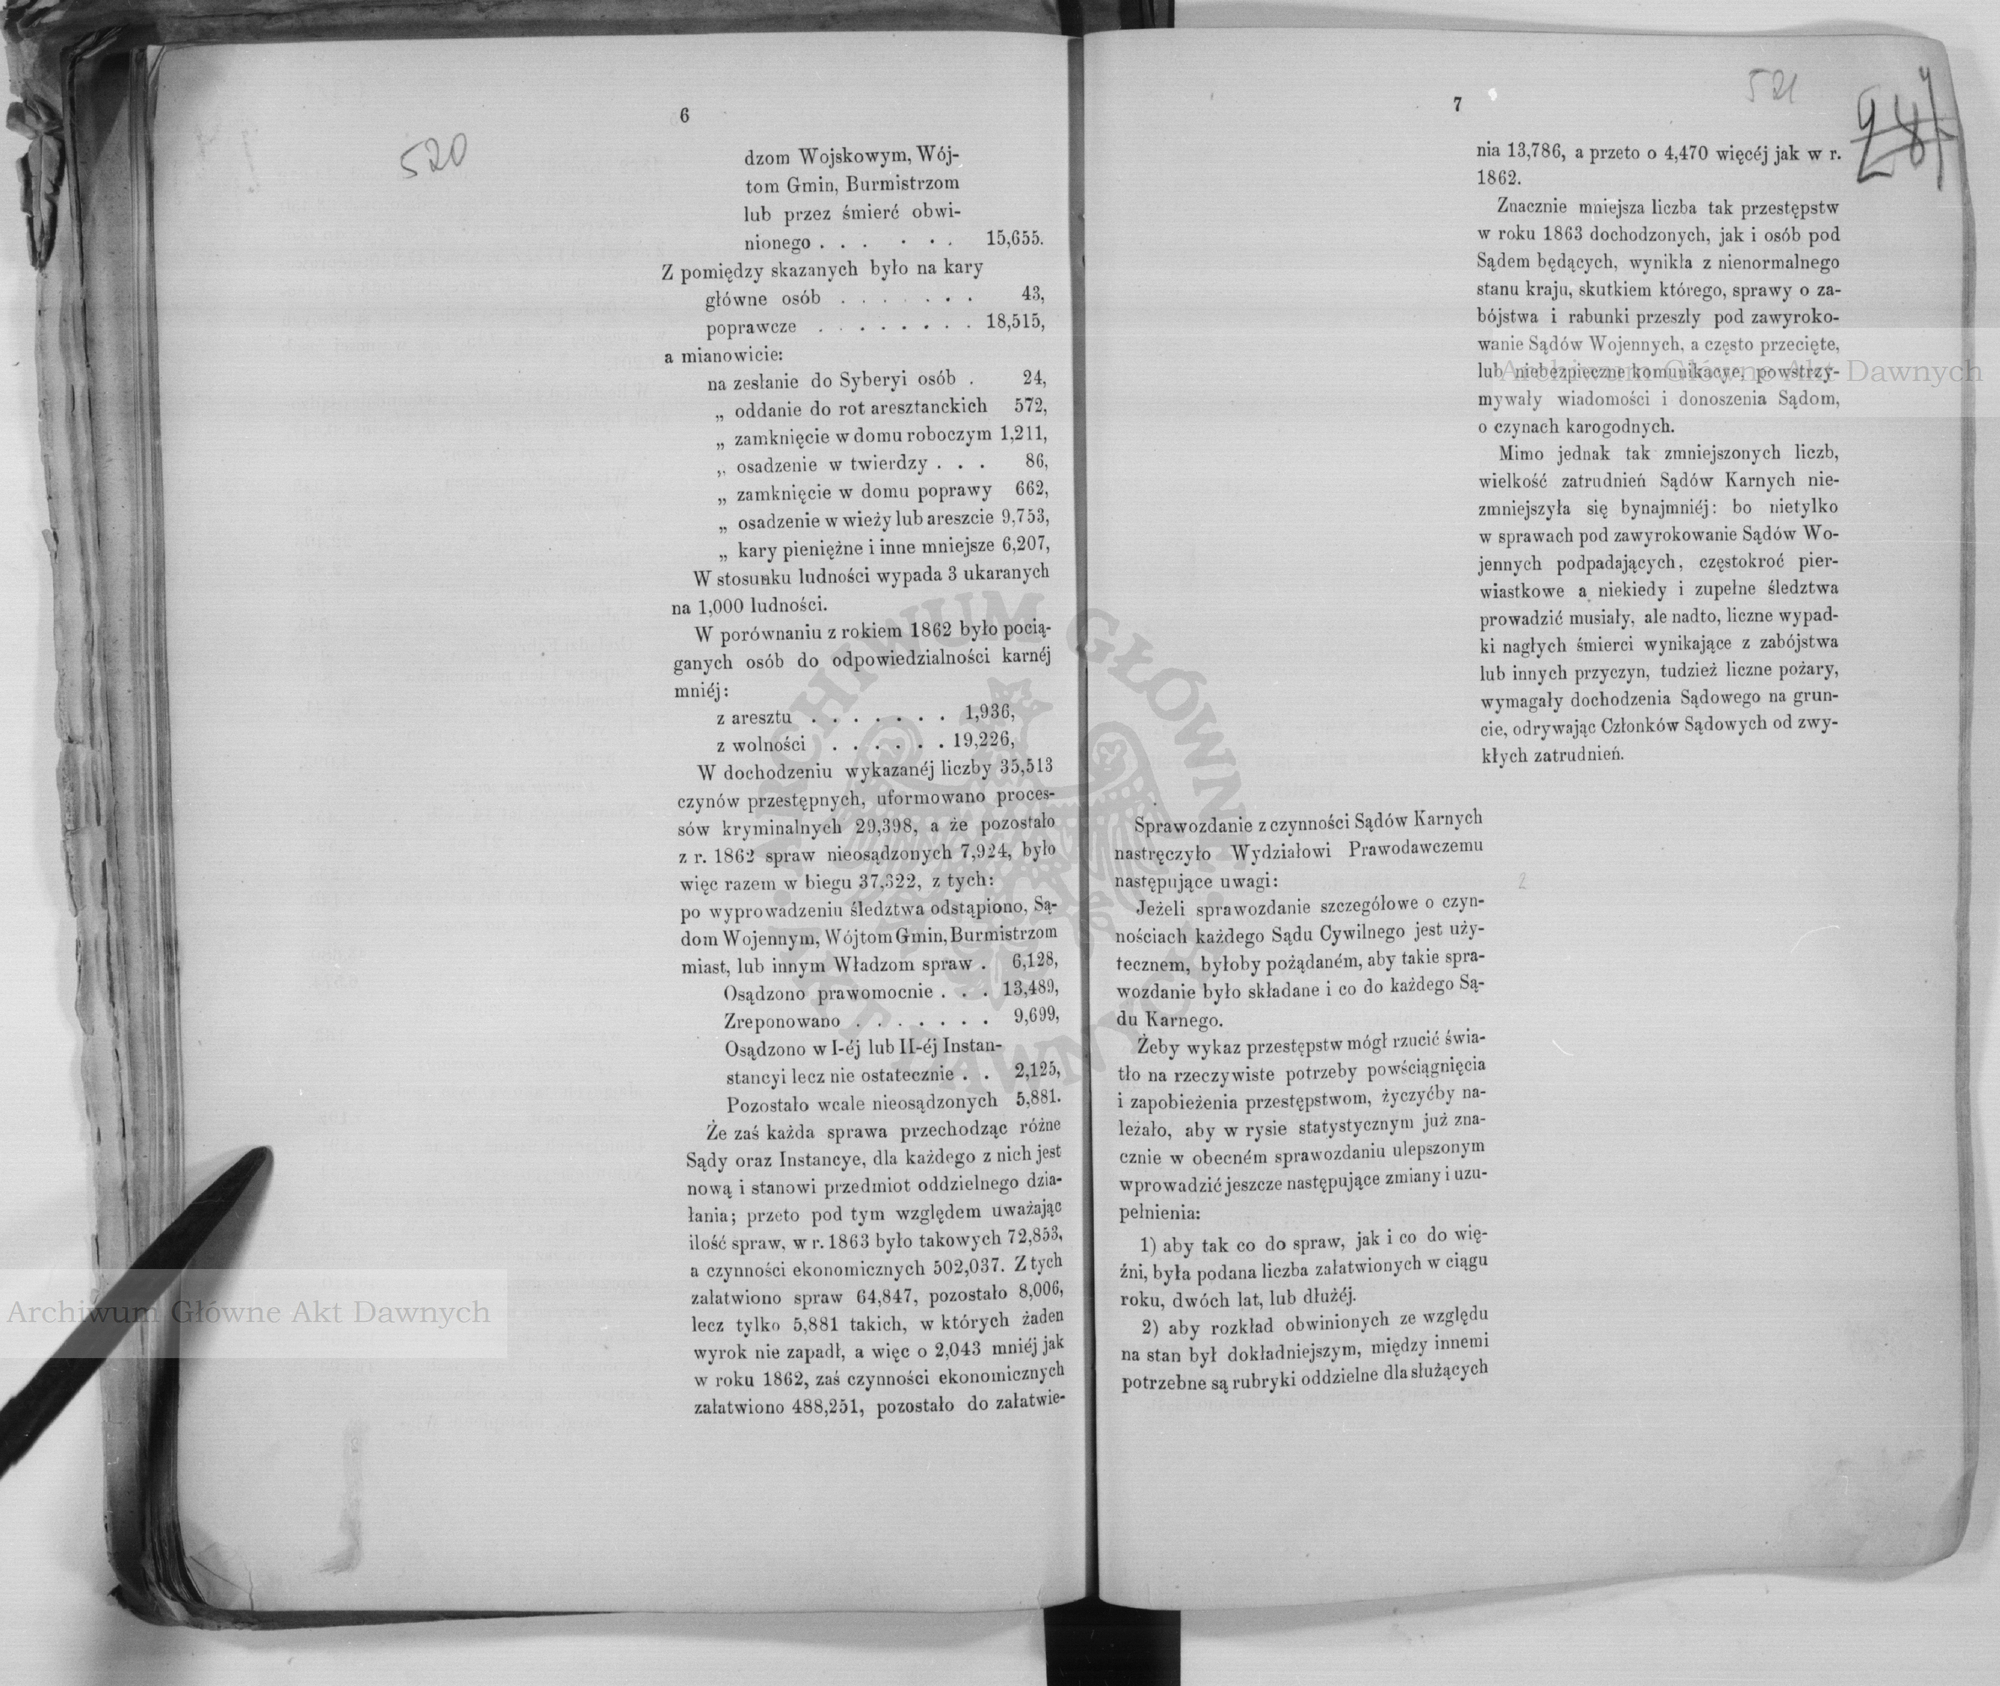 6
520
dzom Wojskowym, Wój-
tom Gmin, Burmistrzom
lub przez śmierć obwi-
nionego . . . . . . 15,655.
Z pomiędzy skazanych było na kary
główne osób . . . . . . . 43,
poprawcze . . . . . . . . 18,515,
a mianowicie:
na zesłanie do Syberyi osób . 24,
„ oddanie do rot aresztanckich 572,
„ zamknięcie w domu roboczym 1,211,
„ osadzenie w twierdzy . . . 86,
„ zamknięcie w domu poprawy 662,
„ osadzenie w wieży lub areszcie 9,753,
„ kary pieniężne i inne mniejsze 6,207,
W stosunku ludności wypada 3 ukaranych
na 1,000 ludności.
W porównaniu z rokiem 1862 było pocią-
ganych osób do odpowiedzialności karnéj
mniéj:
z aresztu . . . . . . . 1,936,
z wolności . . . . . . 19,226,
W dochodzeniu wykazanéj liczby 35,513
czynów przestępnych, uformowano proces-
sów kryminalnych 29,398, a że pozostało
z r. 1862 spraw nieosądzonych 7,924, było
więc razem w biegu 37,322, z tych:
po wyprowadzeniu śledztwa odstąpiono, Są-
dom Wojennym, Wójtom Gmin, Burmistrzom
miast, lub innym Władzom spraw . 6,128,
Osądzono prawomocnie . . . 13,489,
Zreponowano . . . . . . . 9,699,
Osądzono w I-éj lub II-éj Instan-
stancyi lecz nie ostatecznie . . 2,125,
Pozostało wcale nieosądzonych 5,881.
Że zaś każda sprawa przechodząc różne
Sądy oraz Instancye, dla każdego z nich jest
nową i stanowi przedmiot oddzielnego dzia-
łania; przeto pod tym względem uważając
ilość spraw, w r. 1863 było takowych 72,853,
a czynności ekonomicznych 502,037. Z tych
załatwiono spraw 64,847, pozostało 8,006,
lecz tylko 5,881 takich, w których żaden
wyrok nie zapadł, a więc o 2,043 mniéj jak
w roku 1862, zaś czynności ekonomicznych
załatwiono 488,251, pozostało do załatwie-
7
521
nia 13,786, a przeto o 4,470 więcéj jak w r.
1862.
Znacznie mniejsza liczba tak przestępstw
w roku 1863 dochodzonych, jak i osób pod
Sądem będących, wynikła z nienormalnego
stanu kraju, skutkiem którego, sprawy o za-
bójstwa i rabunki przeszły pod zawyroko-
wanie Sądów Wojennych, a często przecięte,
lub niebezpieczne komunikacye, powstrzy-
mywały wiadomości i donoszenia Sądom,
o czynach karogodnych.
Mimo jednak tak zmniejszonych liczb,
wielkość zatrudnień Sądów Karnych nie-
zmniejszyła się bynajmniéj: bo nietylko
w sprawach pod zawyrokowanie Sądów Wo-
jennych podpadających, częstokroć pier-
wiastkowe a niekiedy i zupełne śledztwa
prowadzić musiały, ale nadto, liczne wypad-
ki nagłych śmierci wynikające z zabójstwa
lub innych przyczyn, tudzież liczne pożary,
wymagały dochodzenia Sądowego na grun-
cie, odrywając Członków Sądowych od zwy-
kłych zatrudnień.
Sprawozdanie z czynności Sądów Karnych
nastręczyło Wydziałowi Prawodawczemu
następujące uwagi:
Jeżeli sprawozdanie szczegółowe o czyn-
nościach każdego Sądu Cywilnego jest uży-
tecznem, byłoby pożądaném, aby takie spra-
wozdanie było składane i co do każdego Są-
du Karnego.
Żeby wykaz przestępstw mógł rzucić świa-
tło na rzeczywiste potrzeby powściągnięcia
i zapobieżenia przestępstwom, życzyćby na-
leżało, aby w rysie statystycznym już zna-
cznie w obecném sprawozdaniu ulepszonym
wprowadzić jeszcze następujące zmiany i uzu-
pełnienia:
1) aby tak co do spraw, jak i co do wię-
źni, była podana liczba załatwionych w ciągu
roku, dwóch lat, lub dłużéj.
2) aby rozkład obwinionych ze względu
na stan był dokładniejszym, między innemi
potrzebne są rubryki oddzielne dla służących
Archiwum Główne Akt Dawnych
Archiwum Główne Akt Dawnych
ARCHIWUM GŁÓWNE AKT DAWNYCH